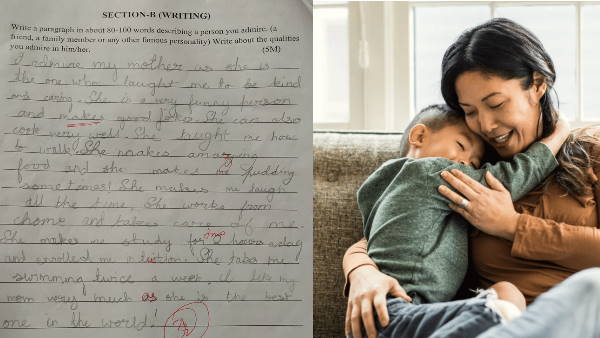 SECTION-B (WRITING)
Write a paragraph in about 80-100 words describing a person you admire. (a
friend, a family member or any other famous personality) Write about the qualities
you admire in him/her. (5M)
I admire my mother as she is
the one who taught me to be kind
and caring. She is a very funny person
and makes good jokes. She can also
cook very well. She taught me how
to walk. She makes amazing
food and she makes me pudding
sometimes! She makes me laugh
all the time. She works from
home and takes care of me.
She makes me study for 2 hours a day
and enrolled me in tuition. She takes me
swimming twice a week. I
mom very much as she is the best
one in the world!